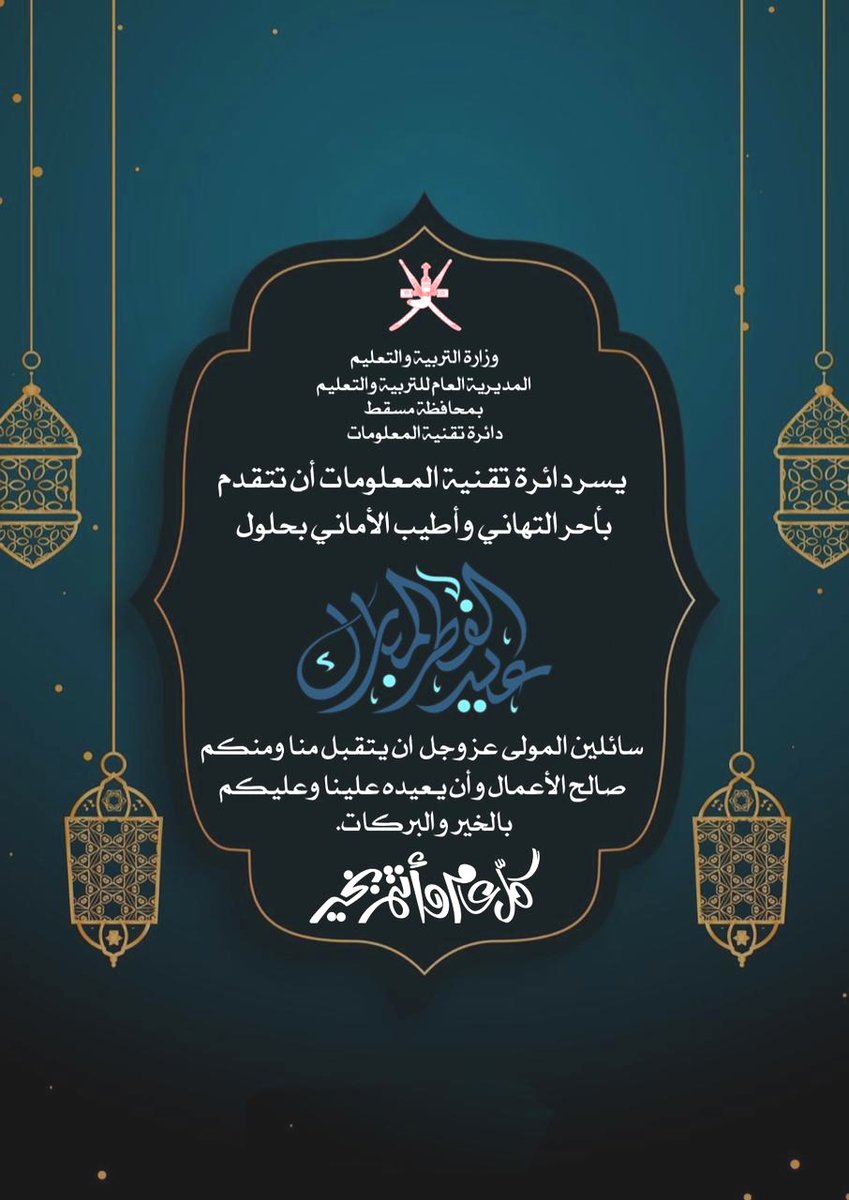 وزارة التربية والتعليم
المديرية العام للتربية والتعليم
بمحافظة مسقط
دائرة تقنية المعلومات
يسر دائرة تقنية المعلومات أن تتقدم
بأحر التهاني وأطيب الأماني بحلول
عيد الفطر المبارك
سائلين المولى عز وجل ان يتقبل منا ومنكم
صالح الأعمال وأن يعيده علينا وعليكم
بالخير والبركات.
كل عام وأنتم بخير